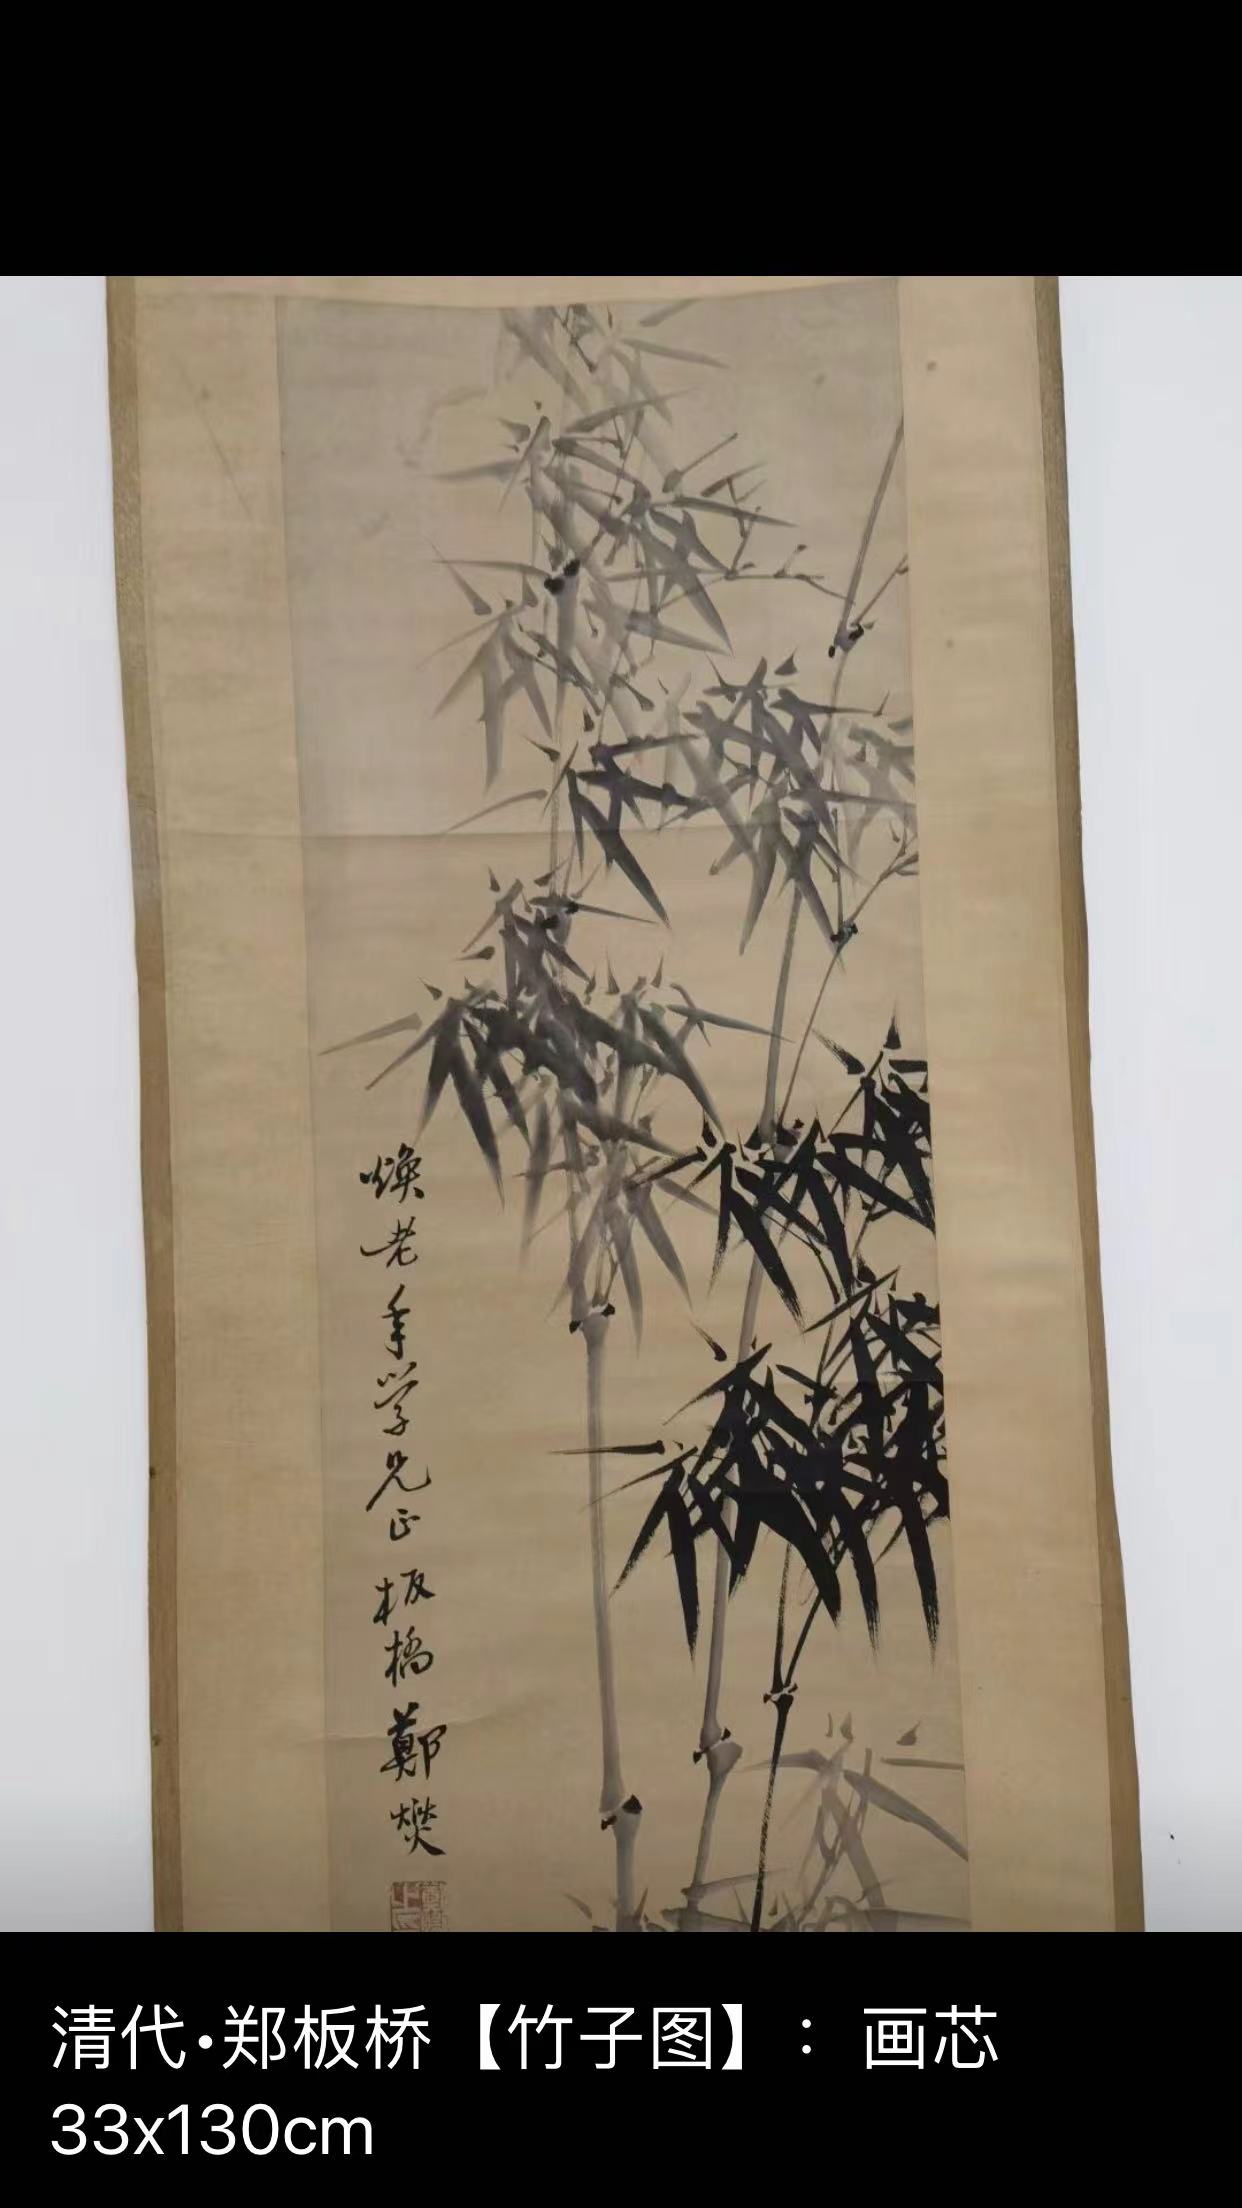 煥老年學兄正 板橋鄭燮
清代•郑板桥【竹子图】：画芯
33x130cm